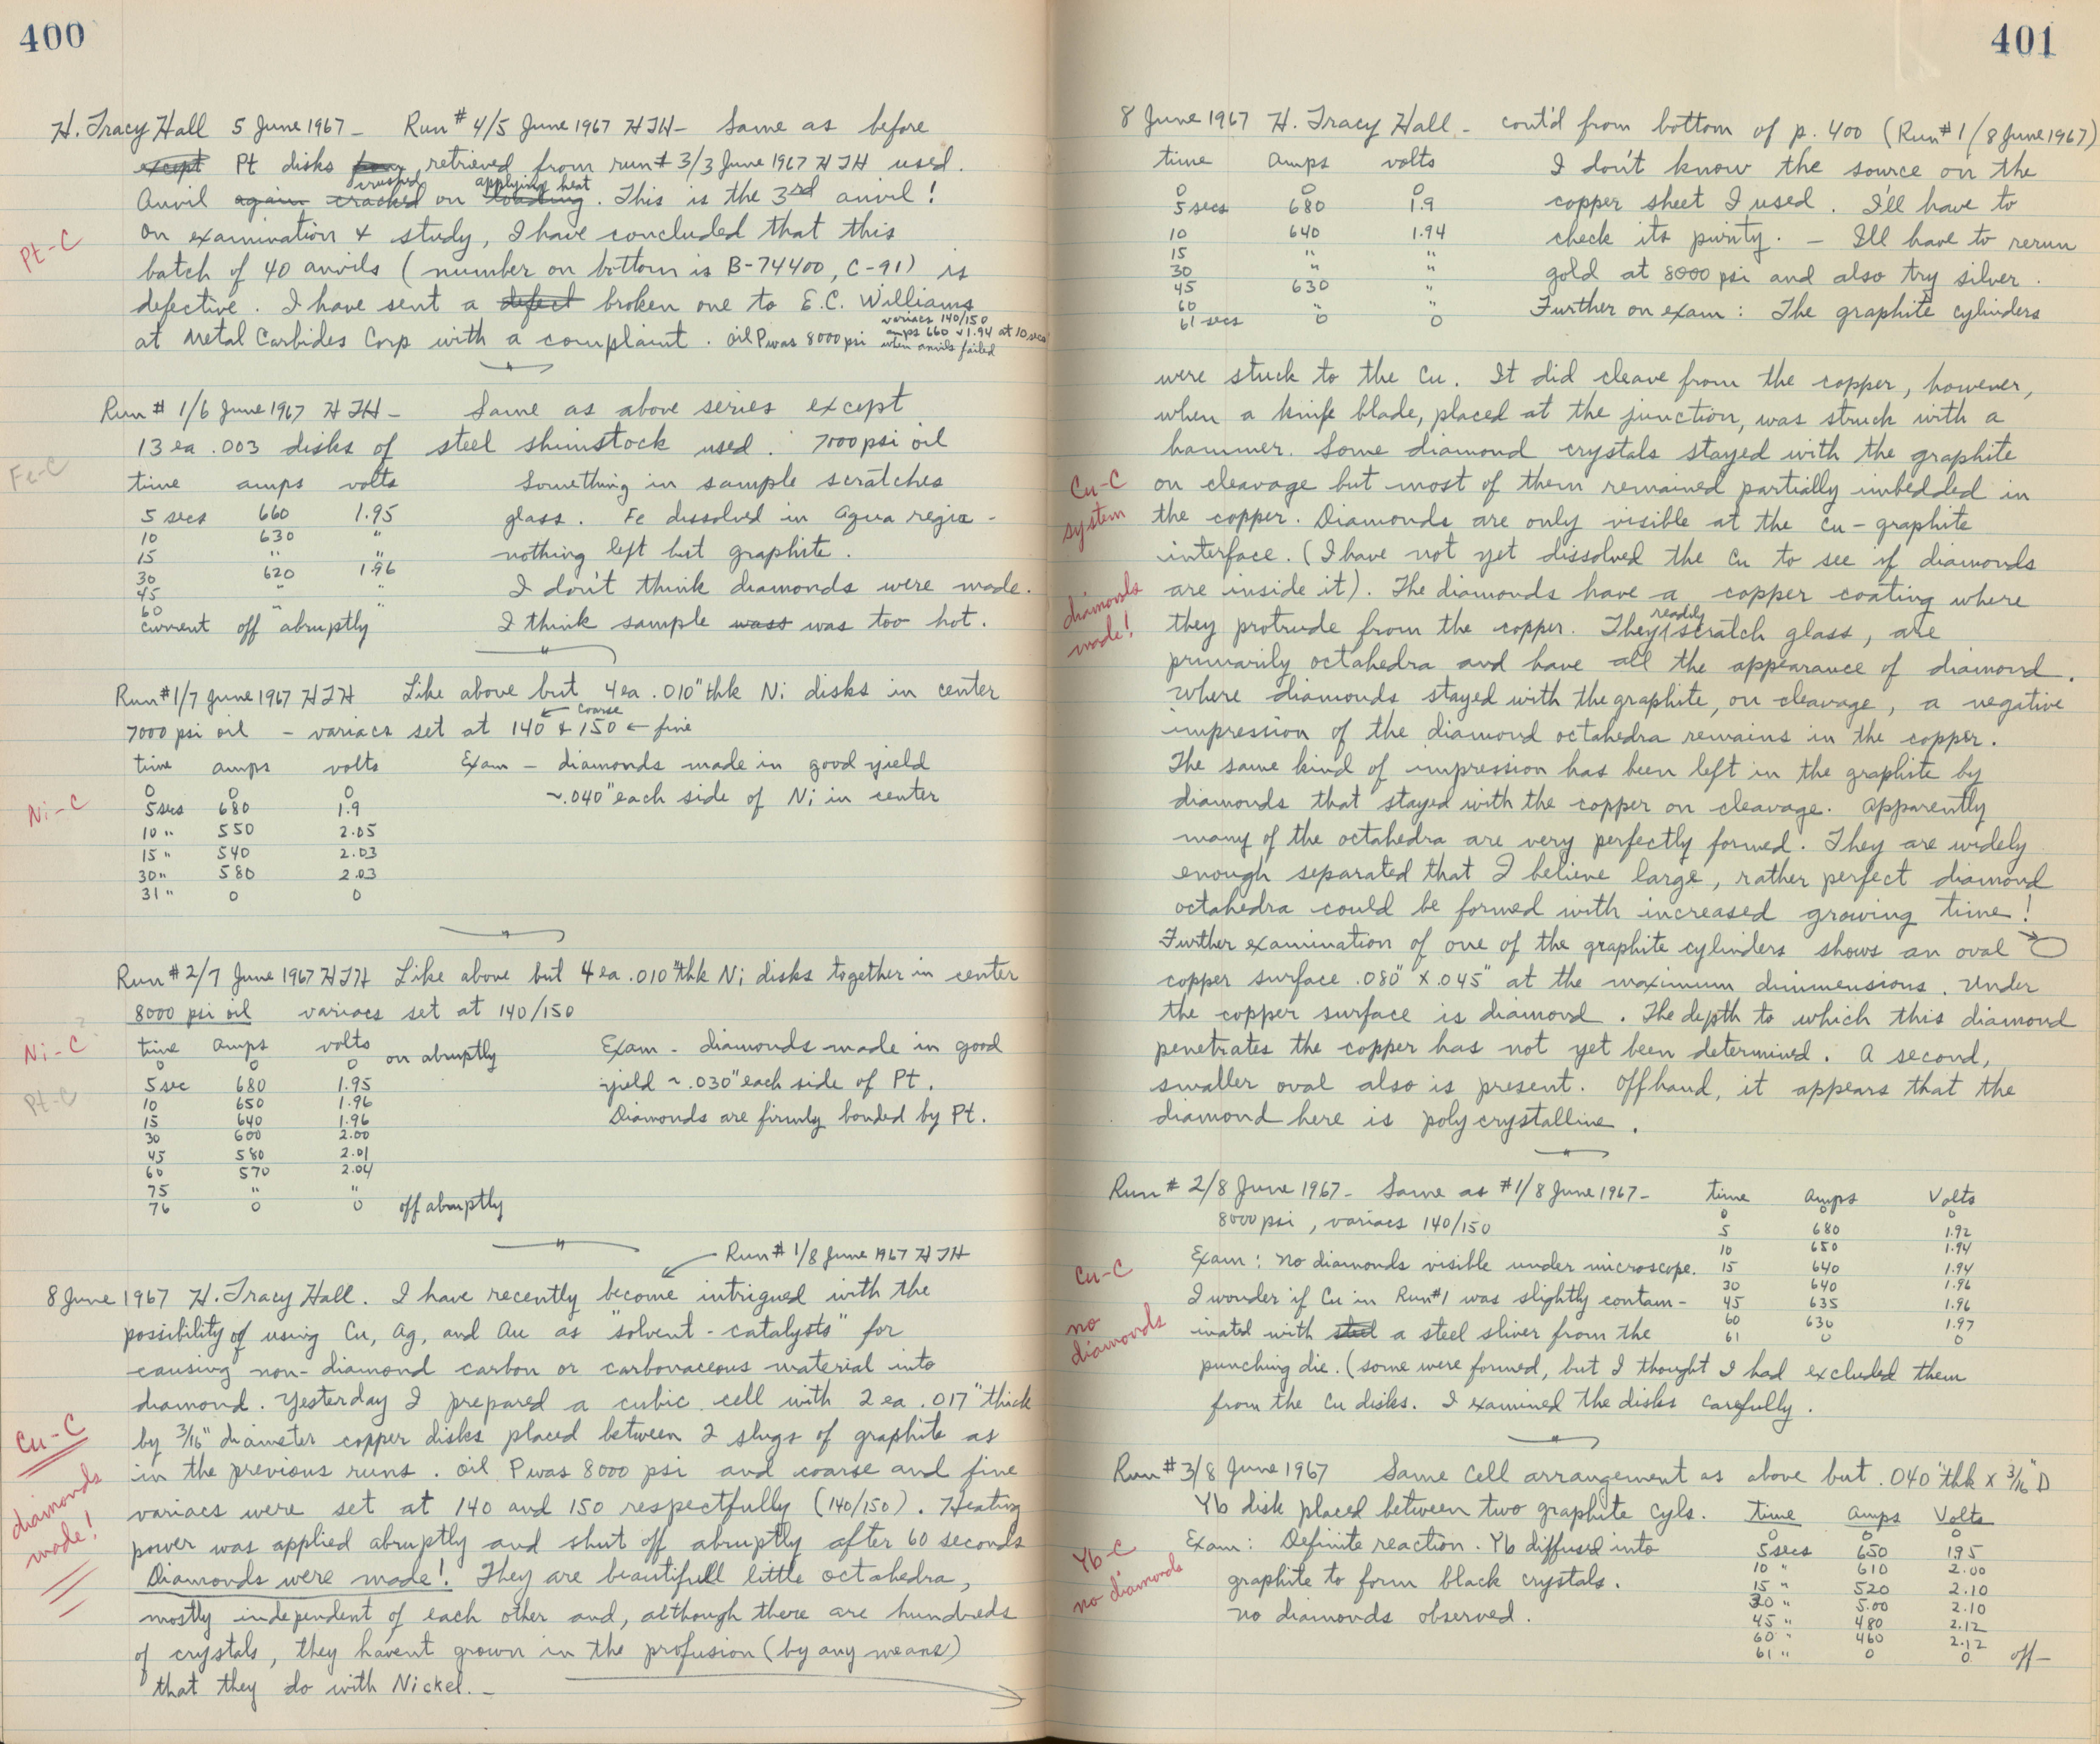 400
H. Tracy Hall 5 June 1967 — Run # 4/5 June 1967 HTH — Same as before
except Pt disks retrieved from run # 3/3 June 1967 HTH used.
crushed applying heat
Anvil again cracked on loading. This is the 3rd anvil!
Pt-C
On examination & study, I have concluded that this
batch of 40 anvils (number on bottom is B-74400, C-91) is
defective. I have sent a defect broken one to E.C. Williams
at Metal Carbides Corp with a complaint. oil P was 8000 psi
variacs 140/150
amps 660 v 1.94 at 10 secs
when anvils failed
Run # 1/6 June 1967 HTH — Same as above series except
13 ea .003 disks of steel shimstock used. 7000 psi oil
Fe-C
time amps volts
5 secs 660 1.95
10 630 "
15 " "
30 620 1.96
45 " "
60 " "
current off abruptly
Something in sample scratches
glass. Fe dissolved in Aqua regia -
nothing left but graphite.
I don't think diamonds were made.
I think sample wass was too hot.
Run # 1/7 June 1967 HTH Like above but 4 ea .010" thk Ni disks in center
7000 psi oil — variacs set at 140 & 150 ← fine
← coarse
time amps volts
0 0 0
5 secs 680 1.9
10 " 550 2.05
15 " 540 2.03
30 " 580 2.03
31 " 0 0
Ni-C
Exam — diamonds made in good yield
~.040" each side of Ni in center
Run # 2/7 June 1967 HTH Like above but 4 ea .010" thk Ni disks together in center
8000 psi oil variacs set at 140/150
Ni-C ?
Pt-C
time amps volts
0 0 0 on abruptly
5 sec 680 1.95
10 650 1.96
15 640 1.96
30 600 2.00
45 580 2.01
60 570 2.04
75 " "
76 0 0 off abruptly
Exam — diamonds made in good
yield ~.030" each side of Pt.
Diamonds are firmly bonded by Pt.
Run # 1/8 June 1967 HTH
8 June 1967 H. Tracy Hall. I have recently become intrigued with the
possibility of using Cu, Ag, and Au as "solvent-catalysts" for
causing non-diamond carbon or carbonaceous material into
diamond. Yesterday I prepared a cubic cell with 2 ea .017" thick
by 3/16" diameter copper disks placed between 2 slugs of graphite as
in the previous runs. Oil P was 8000 psi and coarse and fine
variacs were set at 140 and 150 respectfully (140/150). Heating
power was applied abruptly and shut off abruptly after 60 seconds
Diamonds were made! They are beautifull little octahedra,
mostly independent of each other and, although there are hundreds
of crystals, they havent grown in the profusion (by any means)
that they do with Nickel. —
Cu-C
diamonds
made!
401
8 June 1967 H. Tracy Hall — cont'd from bottom of p. 400 (Run # 1/8 June 1967)
time amps volts
0 0 0
5 secs 680 1.9
10 640 1.94
15 " "
30 " "
45 630 "
60 " "
61 secs 0 0
I don't know the source on the
copper sheet I used. I'll have to
check its purity. — I'll have to rerun
gold at 8000 psi and also try silver.
Further on exam: The graphite cylinders
were stuck to the Cu. It did cleave from the copper, however,
when a knife blade, placed at the junction, was struck with a
hammer. Some diamond crystals stayed with the graphite
on cleavage but most of them remained partially imbedded in
the copper. Diamonds are only visible at the Cu-graphite
interface. (I have not yet dissolved the Cu to see if diamonds
are inside it). The diamonds have a copper coating where
they protrude from the copper. They readily scratch glass, are
primarily octahedra and have all the appearance of diamond.
Where diamonds stayed with the graphite, on cleavage, a negative
impression of the diamond octahedra remains in the copper.
The same kind of impression has been left in the graphite by
diamonds that stayed with the copper on cleavage. Apparently
many of the octahedra are very perfectly formed. They are widely
enough separated that I believe large, rather perfect diamond
octahedra could be formed with increased growing time!
Further examination of one of the graphite cylinders shows an oval
copper surface .080" x .045" at the maximum dimmensions. Under
the copper surface is diamond. The depth to which this diamond
penetrates the copper has not yet been determined. A second,
smaller oval also is present. Offhand, it appears that the
diamond here is polycrystalline.
Cu-C
system
diamonds
made!
Run # 2/8 June 1967 — Same as #1/8 June 1967 —
8000 psi, variacs 140/150
Exam: No diamonds visible under microscope.
I wonder if Cu in Run #1 was slightly contam-
inated with steel a steel sliver from the
punching die. (some were formed, but I thought I had excluded them
from the Cu disks. I examined the disks carefully.
time amps Volts
0 0 0
5 680 1.92
10 650 1.94
15 640 1.94
30 640 1.96
45 635 1.96
60 630 1.97
61 0 0
Cu-C
no
diamonds
Run # 3/8 June 1967 Same cell arrangement as above but .040" thk x 3/16" D
Yb disk placed between two graphite cyls.
Exam: Definite reaction. Yb diffused into
graphite to form black crystals.
No diamonds observed.
time amps Volts
0 0 0
5 secs 650 1.95
10 " 610 2.00
15 " 520 2.10
30 " 5.00 2.10
45 " 480 2.12
60 " 460 2.12
61 " 0 0 off —
Yb-C
no diamonds